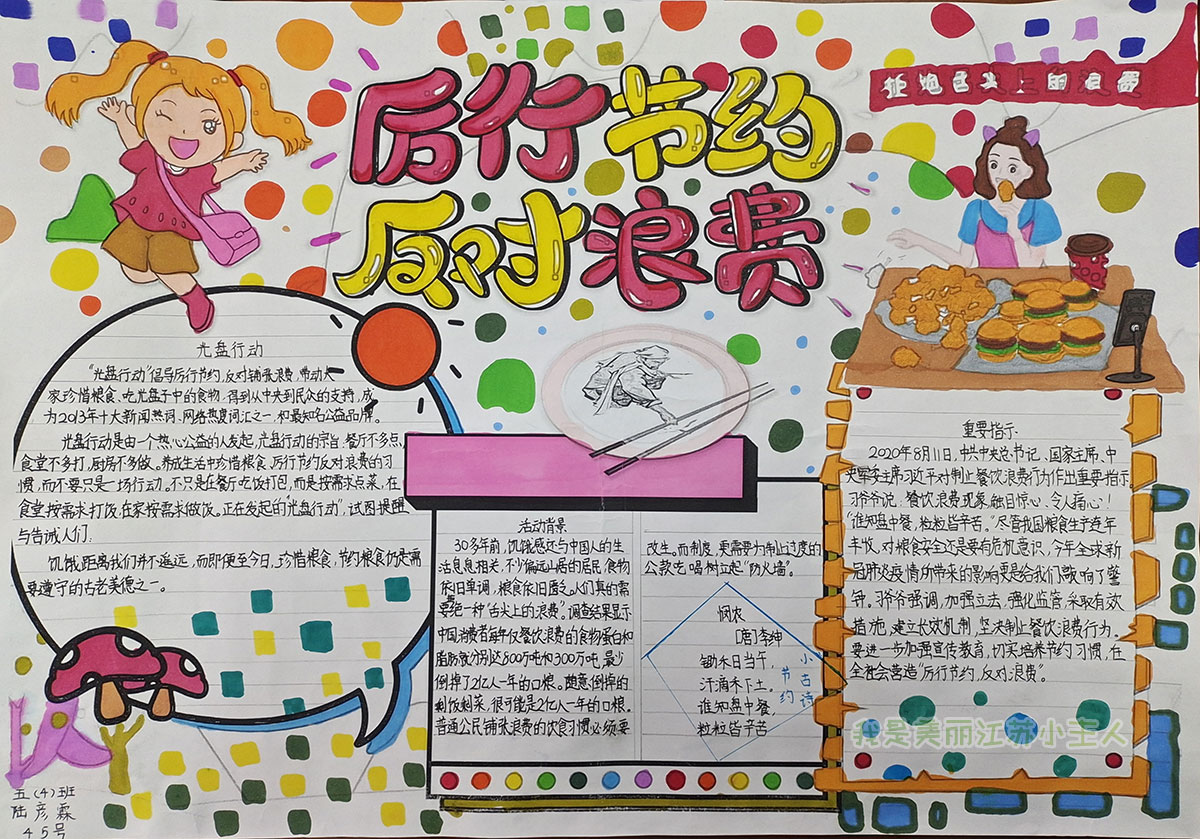 厉行节约
反对浪费
拒绝舌尖上的浪费
光盘行动
"光盘行动"倡导厉行节约,反对铺张浪费,带动大
家珍惜粮食、吃光盘子中的食物,得到从中央到民众的支持,成
为2013年十大新闻热词、网络热度词汇之一和最知名公益品牌。
光盘行动是由一个热心公益的人发起,光盘行动的宗旨:餐厅不多点、
食堂不多打、厨房不多做。养成生活中珍惜粮食、厉行节约反对浪费的习
惯,而不要只是一场行动。不只是在餐厅吃饭打包,而是按需求点菜,在
食堂按需求打饭,在家按需求做饭。正在发起的"光盘行动",试图提醒
与告诫人们:
饥饿距离我们并不遥远,而即便至今日,珍惜粮食,节约粮食仍是需
要遵守的古老美德之一。
活动背景
30多年前,饥饿感还与中国人的生
活息息相关,不少偏远山区的居民,食物
依旧单调,粮食依旧匮乏。人们真的需
要绝一种"舌尖上的浪费"。调查结果显示
中国消费者每年仅餐饮浪费的食物蛋白和
脂肪就分别达800万吨和300万吨,最少
倒掉了2亿人一年的口粮。随意倒掉的
剩饭剩菜,很可能是2亿人一年的口粮。
普通公民铺张浪费的饮食习惯必须要
改生。而制度,更需要为制止过度的
公款吃喝树立起"防火墙"。
悯农
[唐]李绅
锄禾日当午,
汗滴禾下土。
谁知盘中餐,
粒粒皆辛苦
小古诗
节约
重要指示
2020年8月11日,中共中央总书记、国家主席、中
央军委主席习近平对制止餐饮浪费行为作出重要指示。
习爷爷说:餐饮浪费现象,触目惊心、令人痛心!
"谁知盘中餐,粒粒皆辛苦。"尽管我国粮食生产连年
丰收,对粮食安全还是要有危机意识,今年全球新
冠肺炎疫情所带来的影响更是给我们敲响了警
钟。习爷爷强调,加强立法,强化监管,采取有效
措施,建立长效机制,坚决制止餐饮浪费行为。
要进一步加强宣传教育,切实培养节约习惯,在
全社会营造"厉行节约,反对浪费"。
我是美丽江苏小主人
五(4)班
陆彦霖
45号